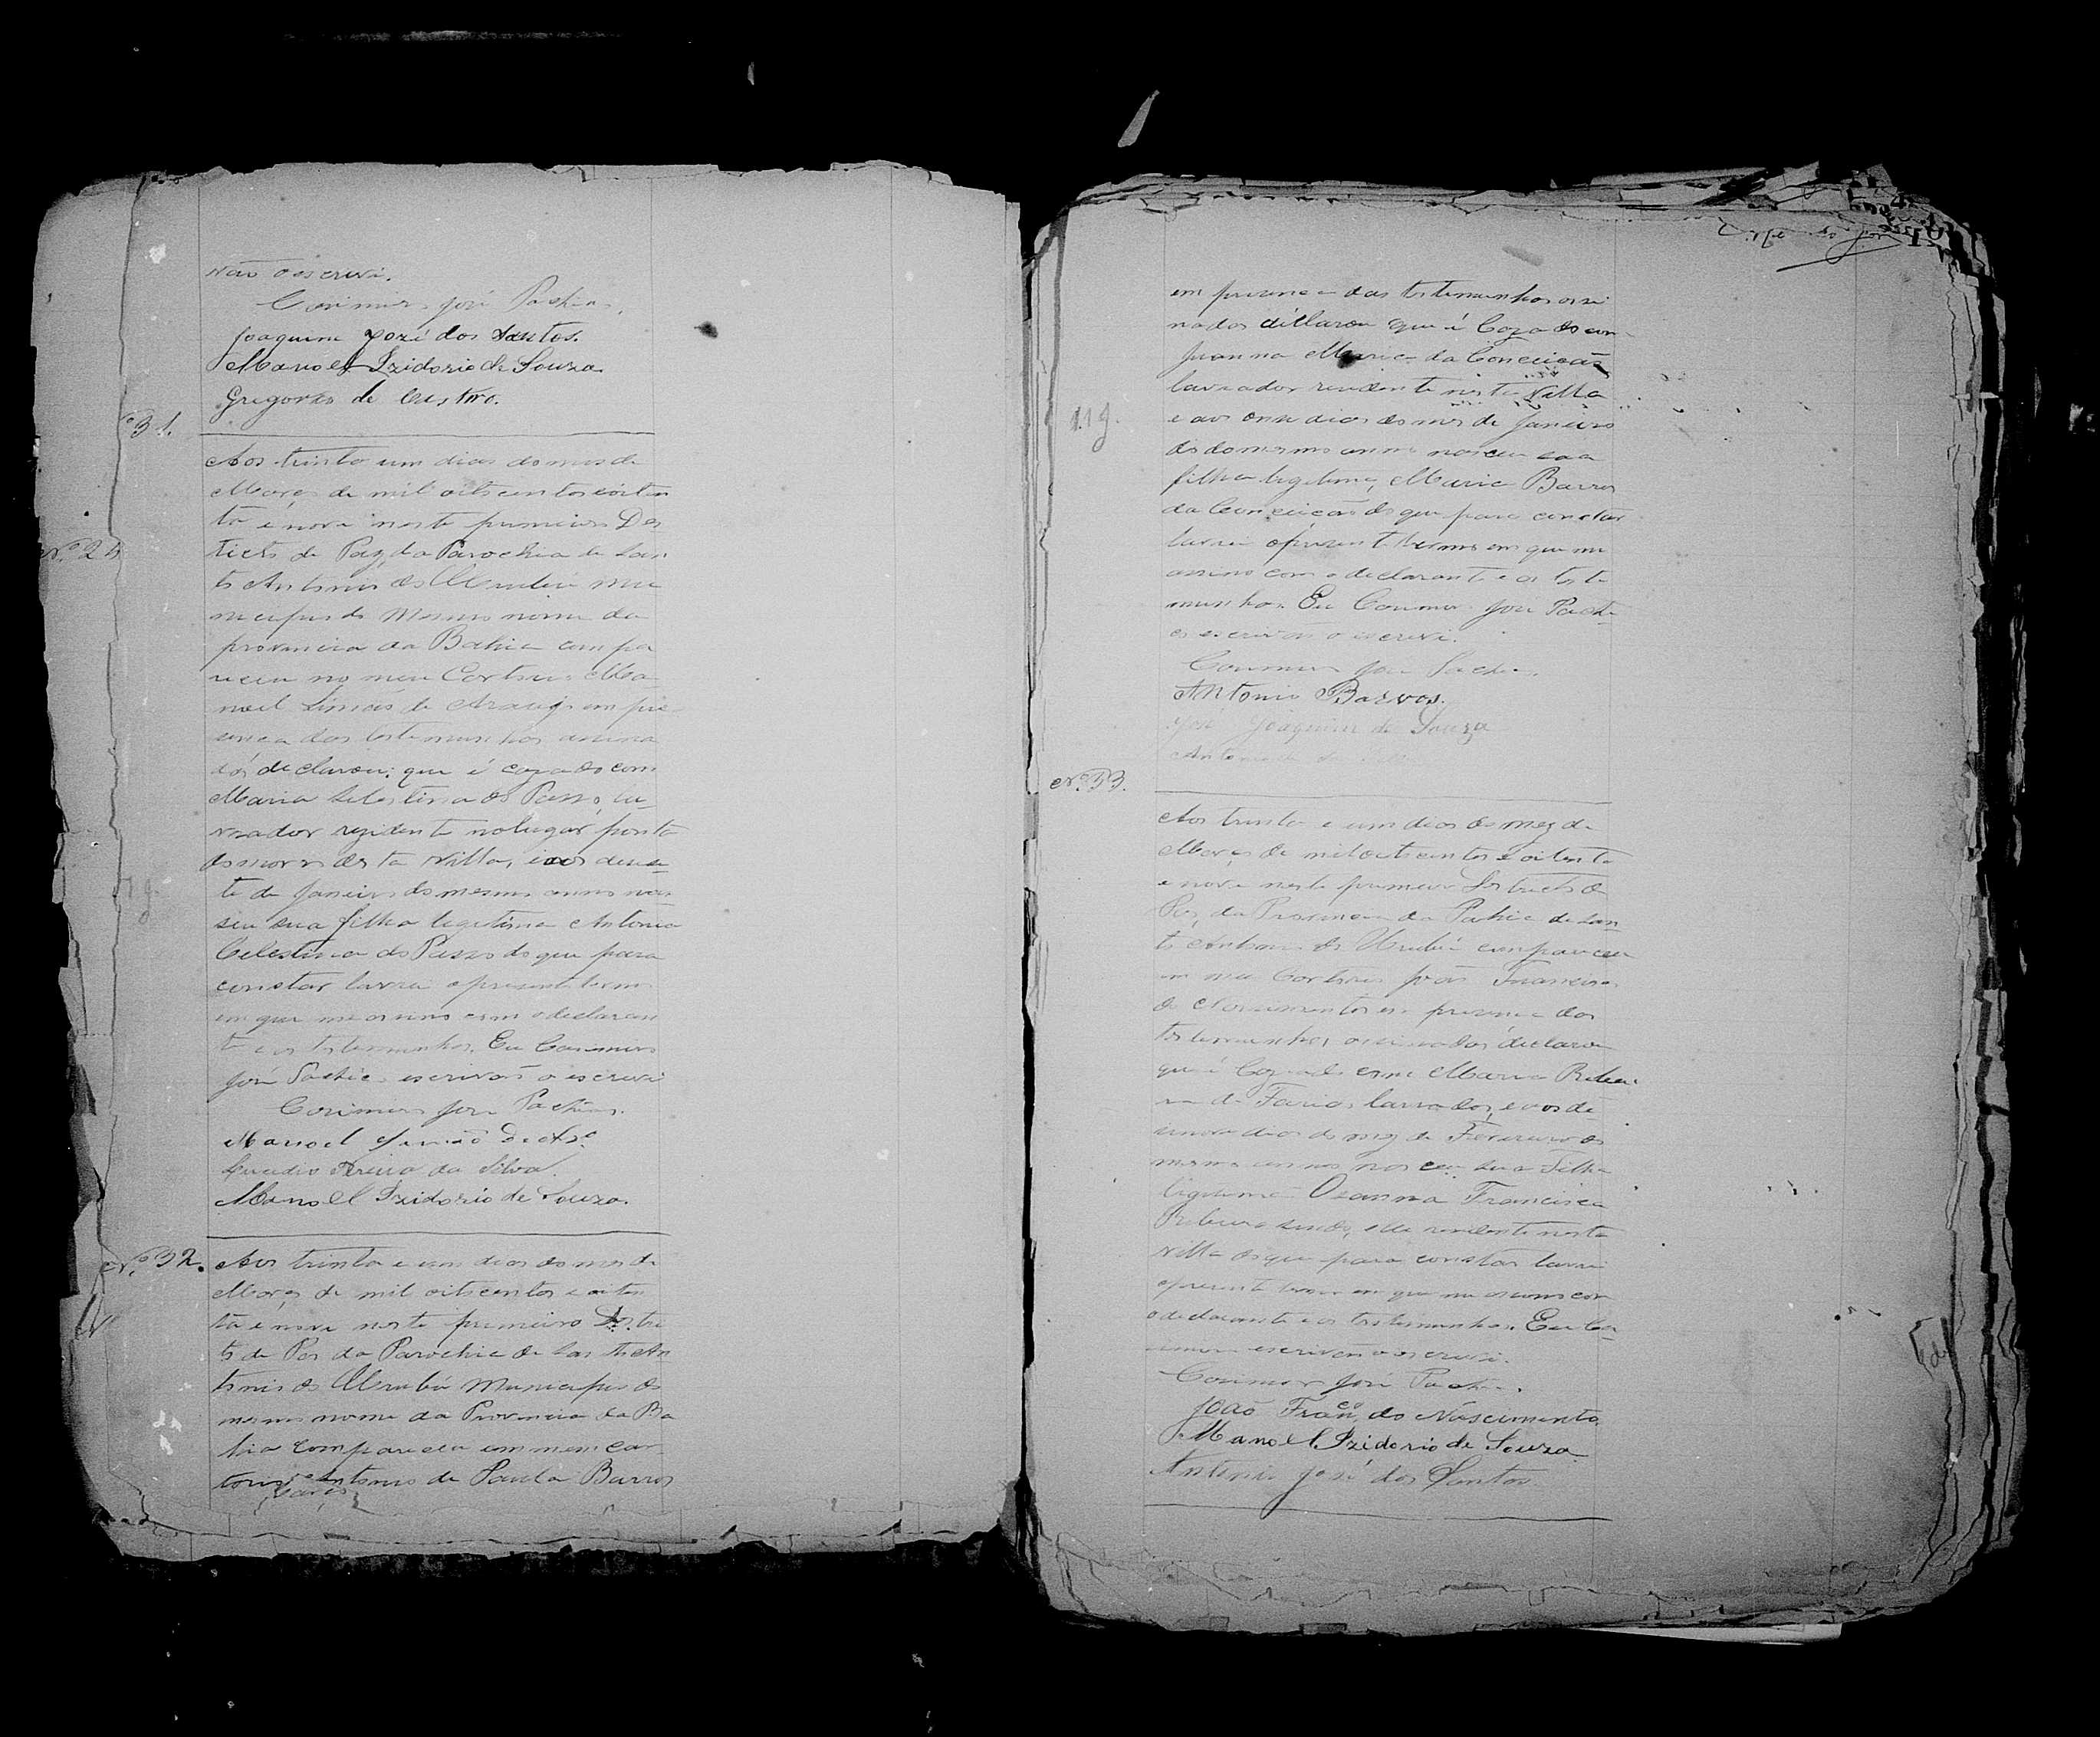 vão o escrevi.
Casimiro José Pachêco.
Joaquim José dos Santos.
Manoel Izidorio de Souza
Gregorio de Castro.
Nº 31.
Aos trinta um dias do mes de
Março de mil oitocentos e oiten
ta e nove neste primeiro Des
ticto de Paz, da Parochia de San
to Antonio do Urubú mu
nicipio do mesmo nome da
provincia da Bahia compa
receu no meu Cartorio Ma
noel Simião de Araujo em pre
sença das testemunhas assina
das declarou: que é cazado com
Maria Selestina do Passo, la
vrador rezidente no lugar ponta
do morro desta Villa, e aos desese
te de Janeiro do mesmo anno nas
seu sua filha legitima Antonia
Celestina do Passo do que para
constar lavrei o presente termo
em que me assino com o declaran
te e as testemunhas. Eu Casimiro
José Pachêco escrivão o escrevi
Casimiro José Pachêco.
Manoel Simião de Arº
Manoel Izidorio de Souza.
Nº 32.
Aos trinta e um dias do mes de
Março de mil oitocentos e oiten
ta e nove neste primeiro Destri
to de Pas da Parochia de Santo An
tonio do Urubú Municipio do
mesmo nome da Provincia da Ba
hia compareceu em meu car
torio Antonio de Paula Barros
em presença das testemunhas assi
nadas decllarou que é Cazado com
Joanna Maria da Conceicão
lavrador residente nesta Villa
e aos onze dias do mes de Janeiro
do mesmo anno nasceu sua
filha legitima, Maria Barros
da Conceicão do que para constar
lavrei o presente termo em que me
assino com o declarante e as teste
munhas. Eu Casimiro José Pachê
co escrivão o escrevi.
Casimiro José Pachêco.
Antonio Barros.
José Joaquim de Souza
Nº 33.
Aos trinta e um dias do mez de
Março de mil oitocentos e oitenta
e nove neste primeiro Destricto de
Pas, da Provincia da Bahia de San
to Antonio do Urubú compareceu
em meu Cartorio João Francisco
do Nascimento em presença das
testemunhas assinadas, declarou
que é Cazado com Maria Ribei
ra de Farias, lavrador, e aos de
senove dias do mez de Fevereiro do
mesmo anno nasceu sua Filha
legitima Osanna Francisca
Ribeira sendo, elle residente nesta
Villa do que para constar lavrei
o presente termo em que me assino com
o declarante e as testemunhas. Eu Ca
simiro escrivão o escrevi.
Casimiro José Pachêco.
João Franco do Nascimento
Manoel Izidorio de Souza
Antonio José dos Santos